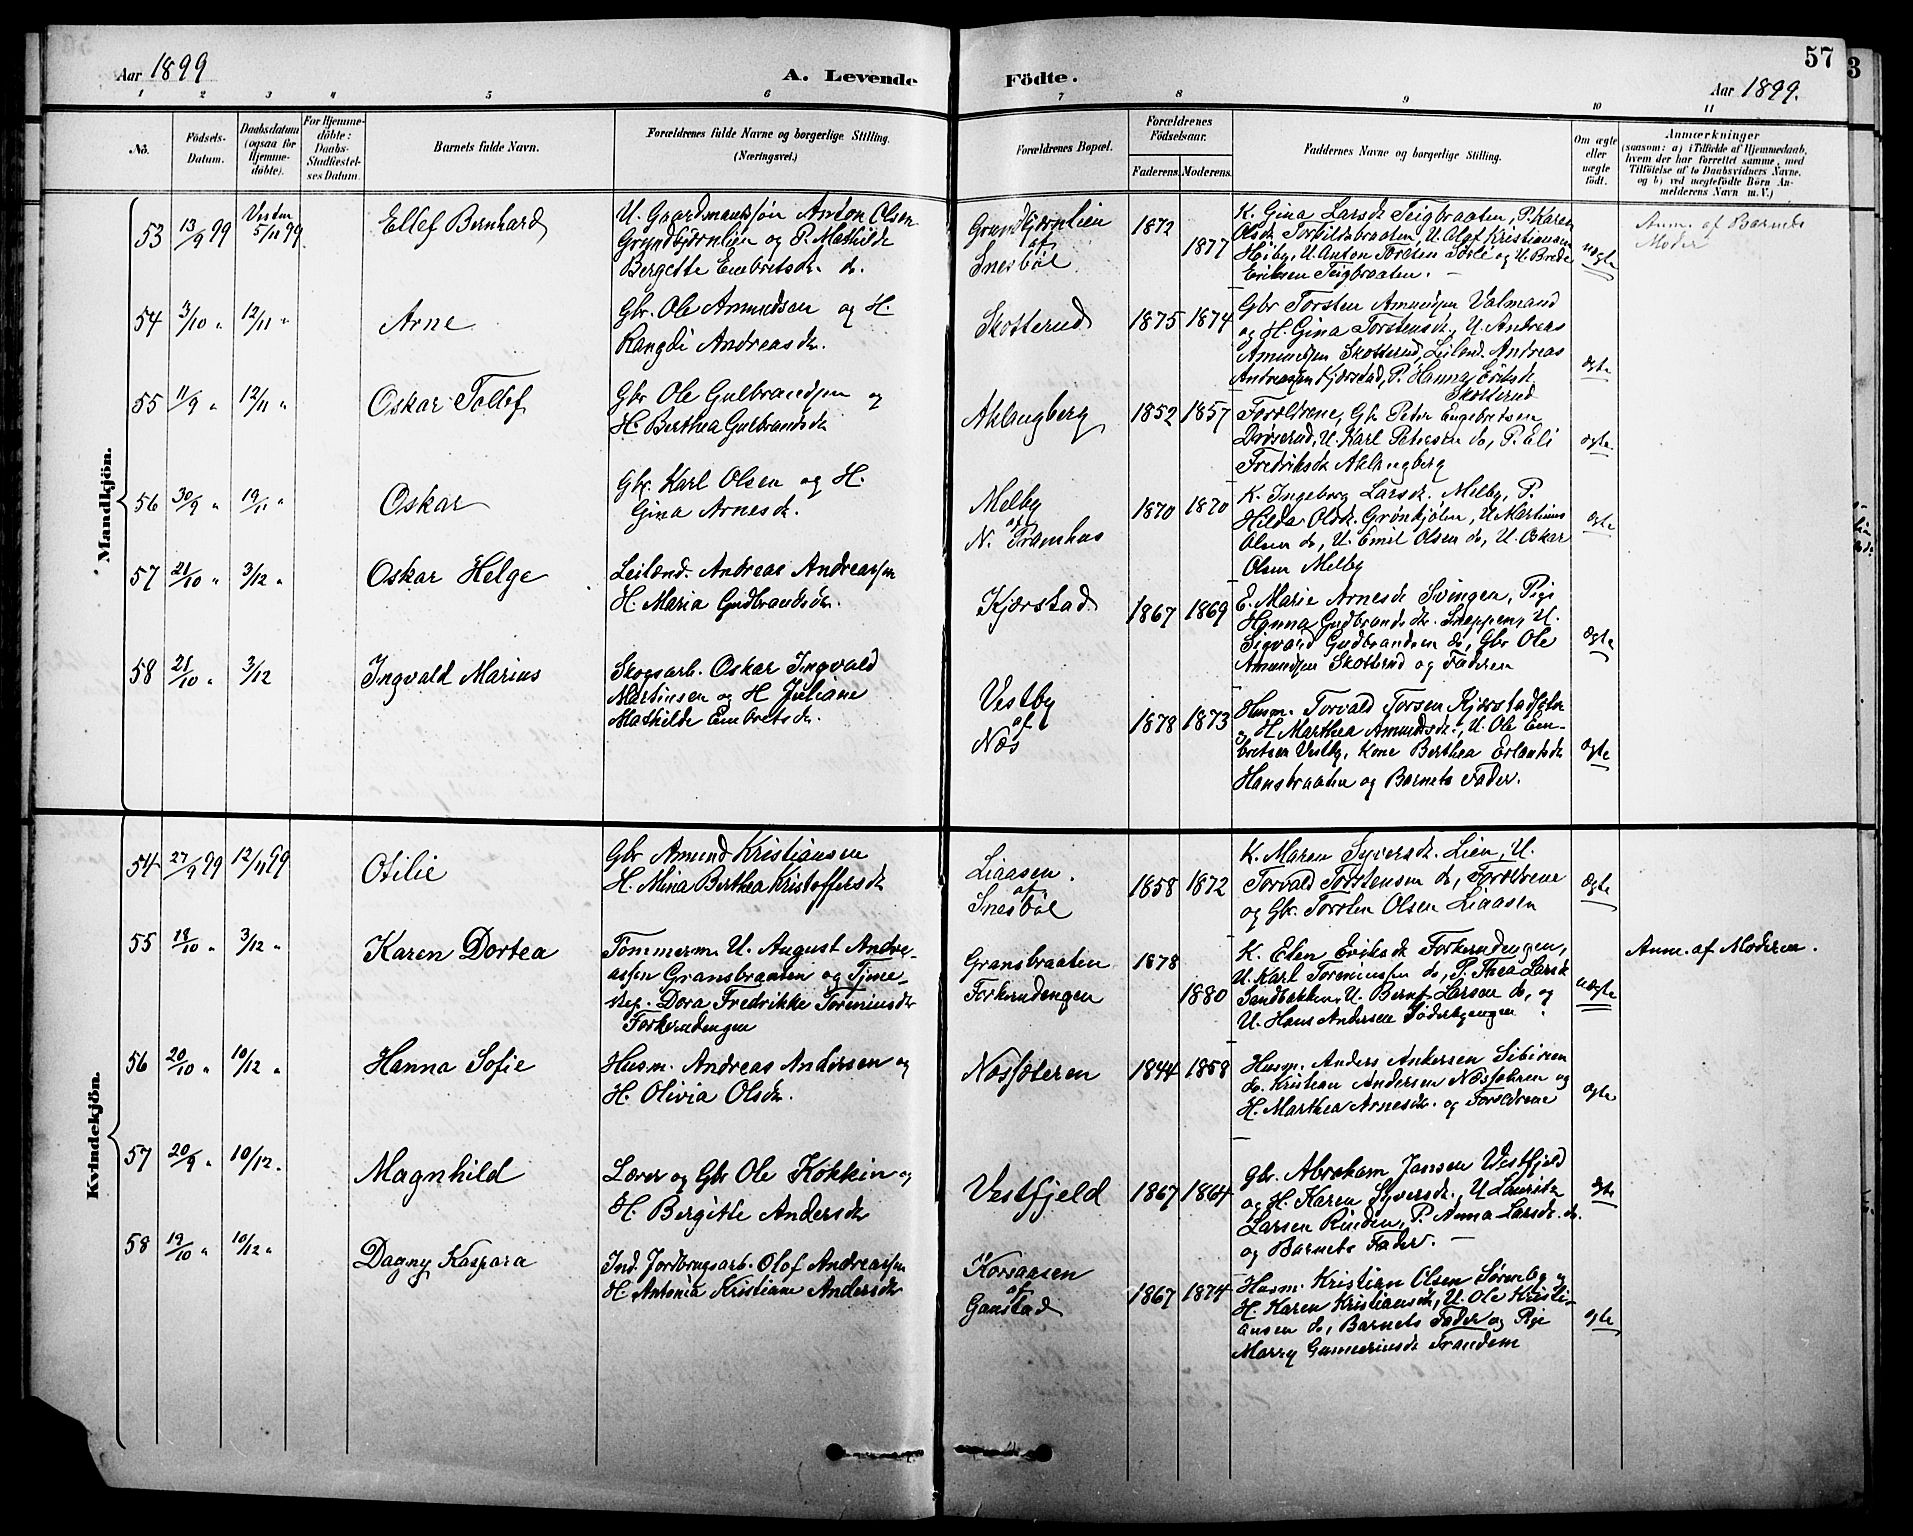 57
3
Aar 1899
A. Levende Födte.
Aar 1899.
1 2 3 4 5 6 7 8 9 10 11
No.
Födsels-
Datum.
Daabsdatum
(ogsaa for
Hjemme-
döbte).
For Hjemme-
döbte:
Daabs-
Stadfæstel-
ses Datum.
Barnets fulde Navn.
Forældrenes fulde Navne og borgerlige Stilling.
(Næringsvei.)
Forældrenes Bopæl.
Forældrenes
Födselsaar.
Faderens. Moderens.
Faddernes Navne og borgerlige Stilling.
Om ægte
eller
uægte
født.
Anmærkninger
(saasom: a) i Tilfælde af Hjemmedaab,
hvem der har forrettet samme, med
Tilföielse af to Daabsvidners Navne,
og b) ved uægtefödte Börn An-
melderens Navn m. V.)
Mandkjön.
53 13/9 99 5/11 99 Ellef Bernhard
U. Gaardmandssøn Anton Olsen
Gryndbjørnlien og P. Mathilde
Bergette Embretsdr. do.
Gryndbjørnlien
af
Snesböl
1872
1877
K. Gina Larsdr. Teigbraaten, P. Karen
Olsdr. Torkildsbraaten, U. Olaf Kristiansen
Høiby, U. Anton Torsten og U. Brede
Eriksen Teigbraaten. –
uægte
Anm. af Barnets
Moder
54 3/10 " 12/11 " Arne
Gbr. Ole Amundsen og H.
Rangdi Andreasdr.
Skotterud
1875 1874
Gbr Torsten Amundsen Valmand
og H. Gina Torstensdr., U. Andreas
Amundsen Skotterud, Leilend. Andreas
Andreassen Kjærstad, P. Hanna Eriksdr.
Skotterud
ægte
55 11/9 " 12/11 " Oskar Tollef
Gbr Ole Gulbrandsen og
H. Berthea Gulbrandsdr
Aklangberg
1852 1857
Forældrene, Gbr Peter Engebretsen
U. Karl Petersen do, P. Eli
Fredriksdr Aklangberg
ægte
56 30/9 " 19/11 " Oskar
Gbr. Karl Olsen og H.
Gina Arnesdr.
Melby
af
N. Pramhus
1870 1870
K. Ingeborg Larsdr. Melby, P.
Hilda Olsdr. Grønkjølen, U. Martinus
Olsen do, U. Emil Olsen do, U. Oskar
Olsen Melby
ægte
57 21/10 " 3/12 " Oskar Helge
Leilænd. Andreas Andreassen
H. Maria Gudbrandsdr.
Kjærstad
1867 1869
E. Marie Arnesdr Svingen, Pige
Hanna Gudbrandsdr. Sneppen, U.
Sigvard Gudbrandsen do, Gbr Ole
Amundsen Skotterud og Faderen
Ægte
58 21/10 " 3/12 Ingvald Marius
Skogsarb. Oskar Ingvald
Martinsen og H Juliane
Mathilde Embretsdr.
Vestby
af
Næs
1878 1873
Husm. Torvald Torsen Kjærstad
og H Marthea Amundsdr., U. Ole Em-
bretsen Vestby, Kone Berthea Erlandsdr
Hansbraaten og Barnets Fader.
ægte
Kvindekjön.
54 27/9 99 12/11 99 Otilie
Gbr Amund Kristiansen
H. Mina Berthea Kristoffersdr
Liaasen.
af
Snesböl
1858 1872
K. Maren Syversdr. Lien, U.
Torvald Torstensen do, Forældrene
og Gbr. Torsten Olsen Liaasen
Ægte
55 18/10 " 3/12 " Karen Dortea
Tømmerm. U. August Andre-
assen Gransbraaten og Tjene-
step. Dora Fredrikke Toreniusdr
Forkerudengen
Gransbraaten
Forkerudengen
1878
1880
K. Elen Eriksdr Forkerudengen,
U. Karl Toreniussen do, P. Thea Larsdr
Sandbakken, U. Bernt Larsen do, og
U. Hans Andersen
uægte
Anm. af Moderen.
56 20/10 " 10/12 " Hanna Sofie
Husm. Andreas Andersen og
H. Olivia Olsdr.
Næssæteren
1844 1858
Husm. Anders Ankersen Sibirien
do. Kristian Andersen Næssæteren og
H. Marthea Arnesdr. og Forældrene
ægte
57 20/9 " 10/12 " Magnhild
Lærer og Gbr Ole Kokkin og
H. Bergitte Andersdr
Vestfjeld
1867 1864
Gbr. Abraham Jansen Vestfjeld
og H. Karen Syversdr., U Lauritz
Larsen Rinden, P. Anna Larsdr. do.
og Barnets Fader. –
ægte
58 19/10 " 10/12 " Dagny Kaspara
Ind. Jordbrugsarb. Olof Andreassen
H. Antonia Kristiane Andersdr
Korsaasen
af
Ganstad
1867 1874
Husm. Kristian Olsen Sørenby og
H. Karen Kristiansdr, U. Ole Kristi-
ansen do, Barnets Fader og Pige
Marry Gunneriusdr Trandem
ægte